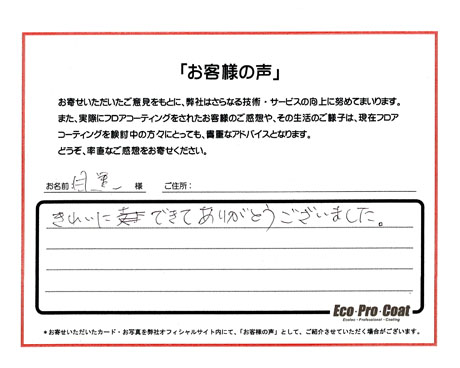 「お客様の声」
お寄せいただいたご意見をもとに、弊社はさらなる技術・サービスの向上に努めてまいります。
また、実際にフロアコーティングをされたお客様のご感想や、その生活のご様子は、現在フロア
コーティングを検討中の方々にとっても、貴重なアドバイスとなります。
どうぞ、率直なご感想をお寄せください。
お名前 様 ご住所:
きれいに できてありがとうございました。
Eco·Pro·Coat
Ecoloc・Professional・Coating
*お寄せいただいたカード・お写真を弊社オフィシャルサイト内にて、「お客様の声」として、ご紹介させていただく場合がございます。